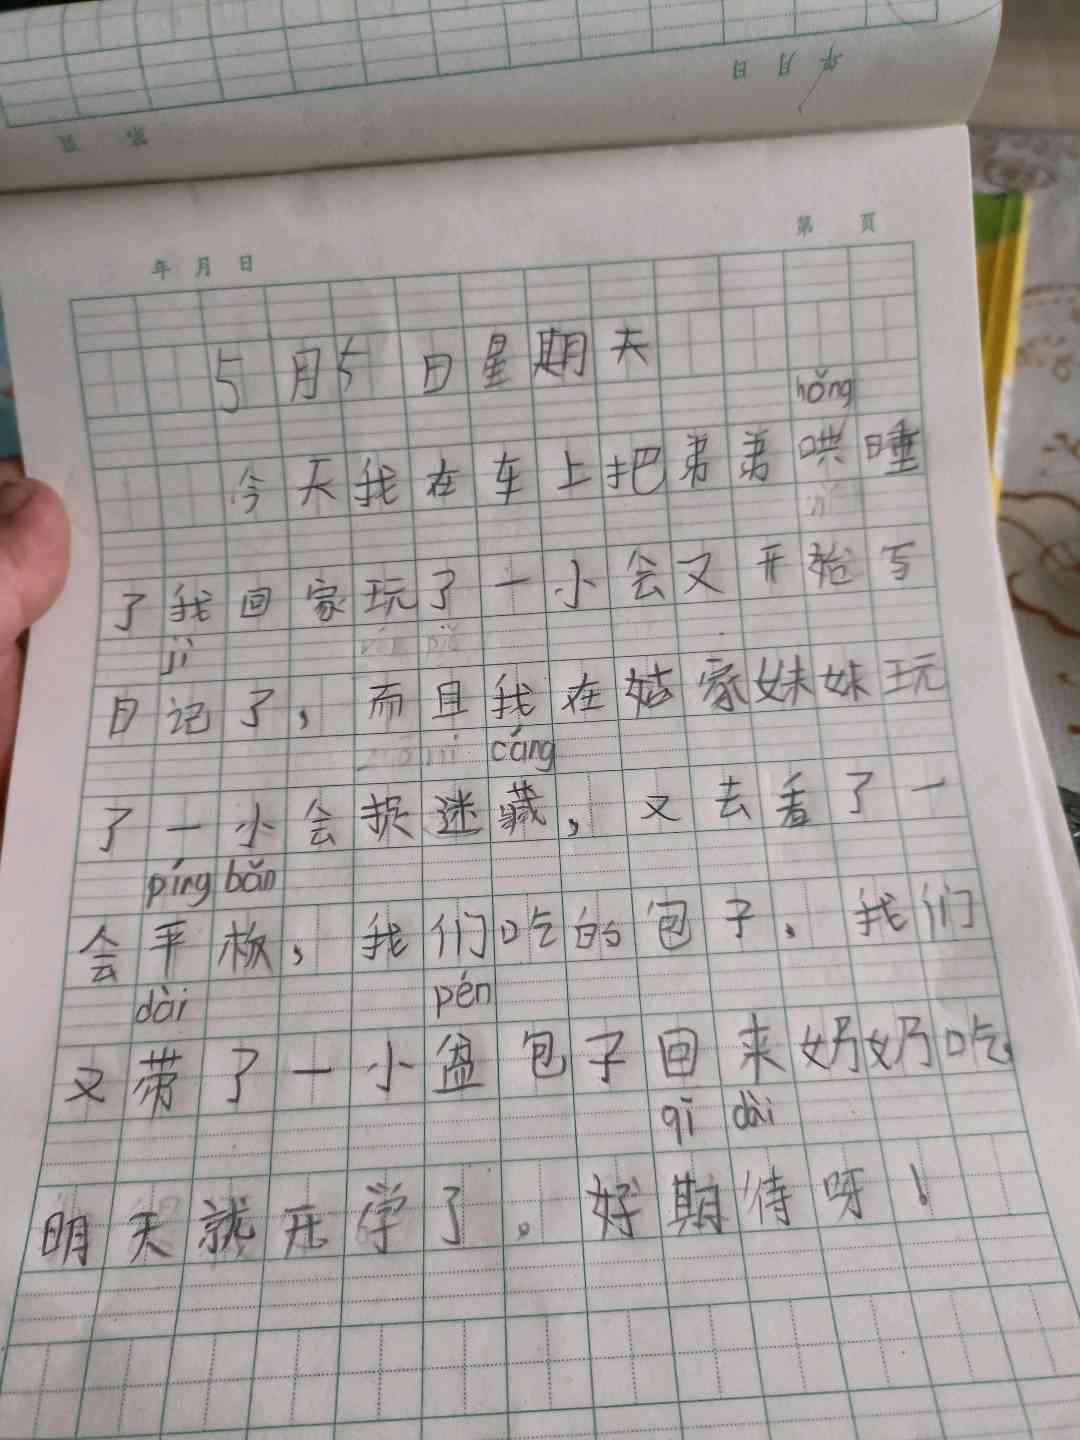 年 月 日
页 第
第 页
年 月 日
5月5日星期天
hǒng
今天我在车上把弟弟哄睡
了我回家玩了一小会又开始写
jì
日记了，而且我在姑家妹妹玩
cáng
了一小会捉迷藏，又去看了一
píng bǎn
会平板，我们吃的包子，我们
dài pén
又带了一小盆包子回来奶奶吃，
qī dài
明天就开学了。好期待呀！